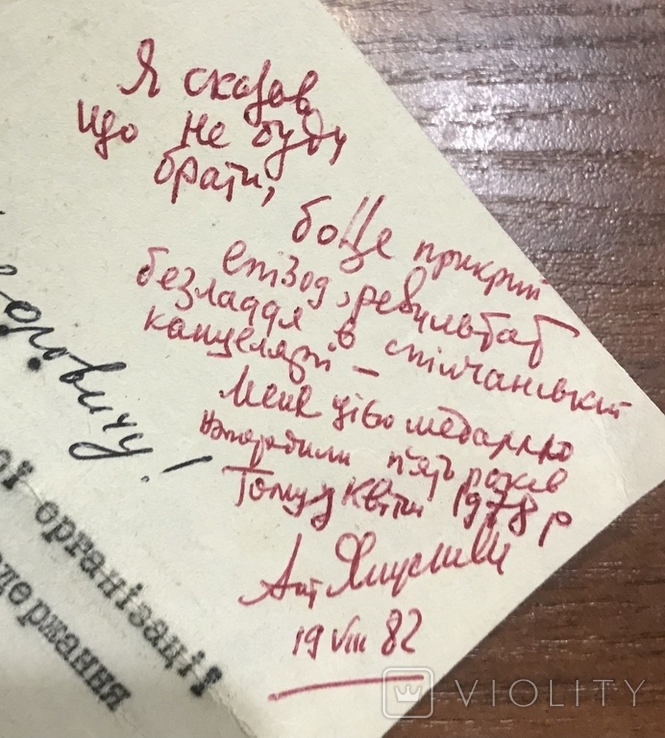 Я сказав,
що не буду
брати,
бо Це прикрий
епізод, результат
безладдя в спілчанській
канцелярії –
Мене цією медаллю
нагородили п'ять років
Тому у квітні 1978 р
Ант
19 VIII 82
оровичу!
ої організації
держання
VIOLITY